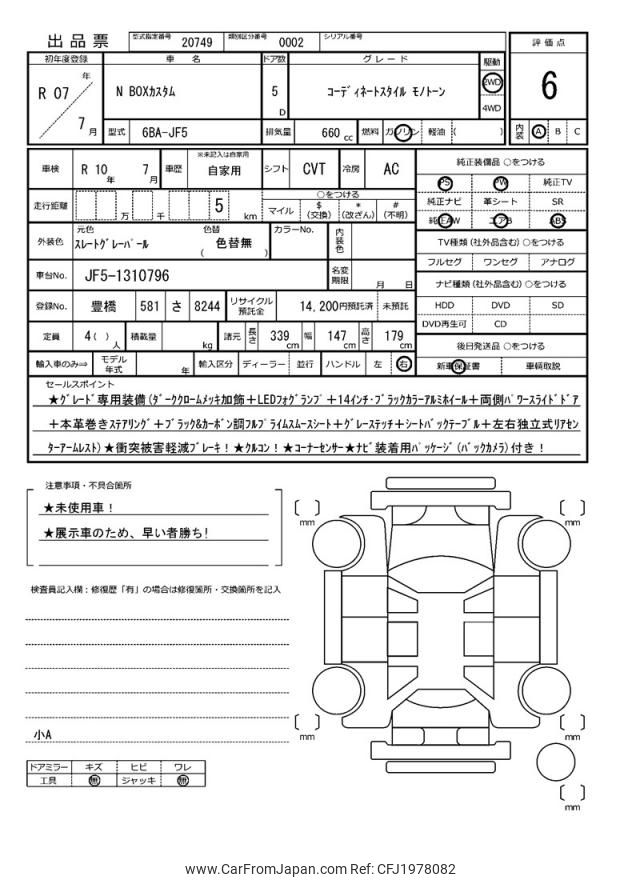 出品票 型式指定番号 20749 類別区分番号 0002 シリアル番号
評価点
6
内装 A B C
初年度登録 車名 ドア数 グレード 駆動
R 07 年 7 月 N BOXカスタム 5 D コーディネートスタイル モノトーン 2WD 4WD
型式 6BA-JF5 排気量 660 cc 燃料 ガソリン 軽油 ( )
車検 R 10 年 7 月 車歴 ※未記入は自家用 自家用 シフト CVT 冷房 AC
純正装備品 ○をつける
PS PW 純正TV
純正ナビ 革シート SR
純正AW エアB ABS
走行距離 万 千 5 km ○をつける マイル $(交換) *(改ざん) #(不明)
外装色 元色 スレートグレーパール 色替 ( 色替無 カラーNo. 内装色
TV種類(社外品含む)○をつける
フルセグ ワンセグ アナログ
車台No. JF5-1310796 名変期限 月 日
ナビ種類(社外品含む)○をつける
HDD DVD SD
DVD再生可 CD
登録No. 豊橋 581 さ 8244 リサイクル預託金 14,200円預託済 未預託
定員 4( )人 積載量 kg 諸元 長さ 339 cm 幅 147 cm 高さ 179 cm
後日発送品 ○をつける
新車保証書 車輌取説
輸入車のみ⇒ モデル年式 年 輸入区分 ディーラー 並行 ハンドル 左 右
セールスポイント
★グレード専用装備(ダーククロームメッキ加飾+LEDフォグランプ+14インチ・ブラックカラーアルミホイール+両側パワースライドドア
+本革巻きステアリング+ブラック&カーボン調フルプライムスムースシート+グレーステッチ+シートバックテーブル+左右独立式リアセン
ターアームレスト)★衝突被害軽減ブレーキ!★クルコン!★コーナーセンサー★ナビ装着用パッケージ(バックカメラ)付き!
注意事項・不具合箇所
★未使用車!
★展示車のため、早い者勝ち!
検査員記入欄:修復歴「有」の場合は修復箇所・交換箇所を記入
小A
ドアミラー キズ ヒビ ワレ
工具 無 ジャッキ 無
mm
mm
mm
mm
mm
www.CarFromJapan.com Ref: CFJ1978082